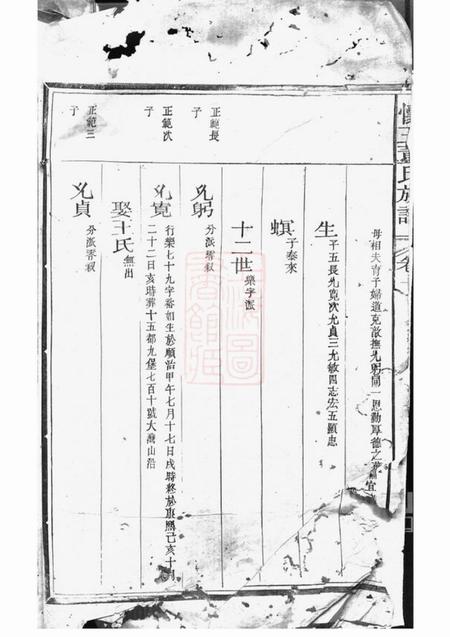 氏族譜
母相夫育子婦道克敵撫允躬同一恩勤厚德之
生 子五長允寬次允貞三允敏四志宏五顯忠
螟 子泰來
十二世 樂字派
正範長子 允躬 分派
正範次子 允寬 行樂七十九字裕如生於順治甲午七月十七日戌時終於康熙己亥十月
二十二日亥時葬十五都九堡七百十號大灣山沿
娶王氏 無出
正範三子 允貞 分派